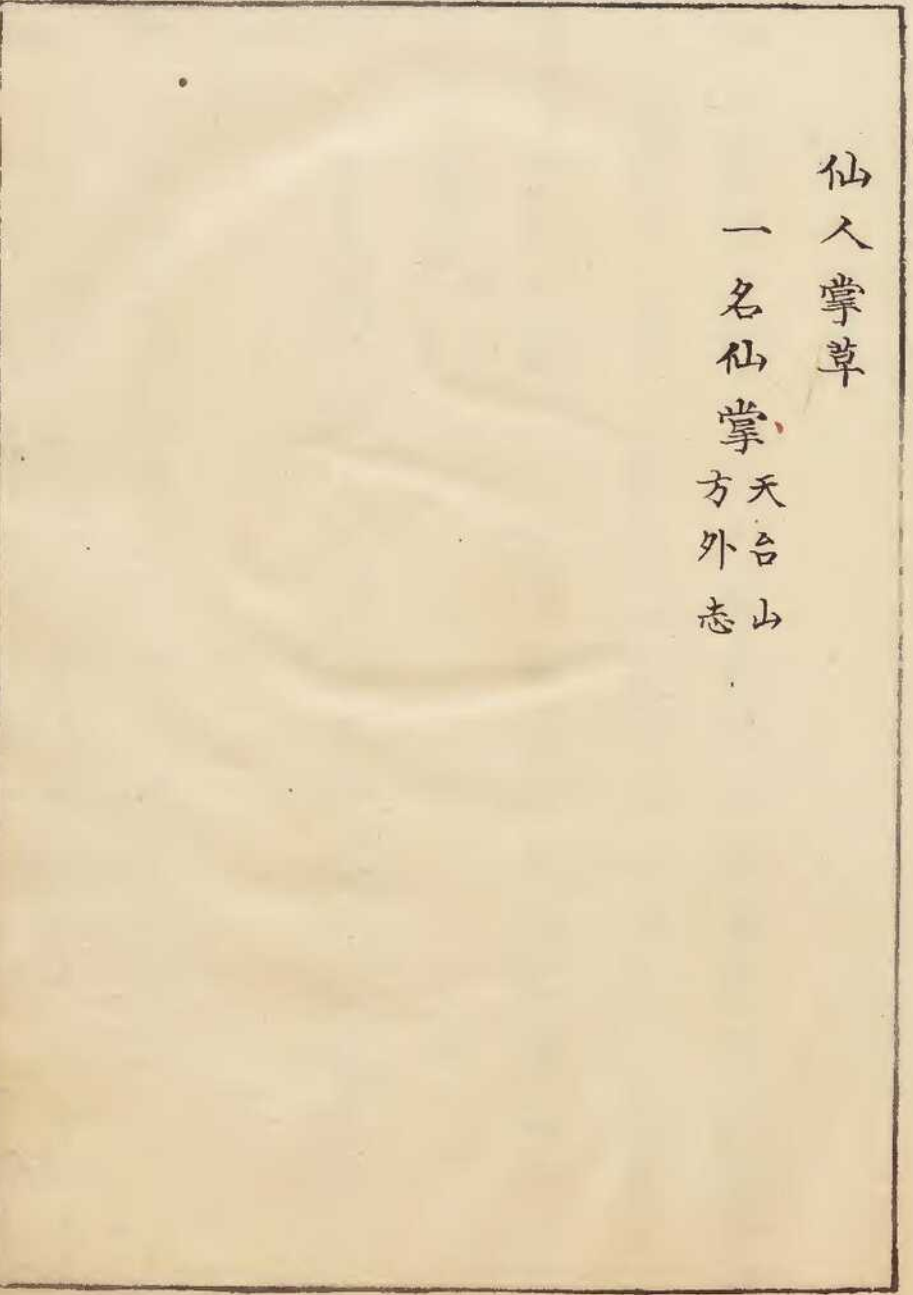 仙人掌草
一名仙掌天台山
方外志